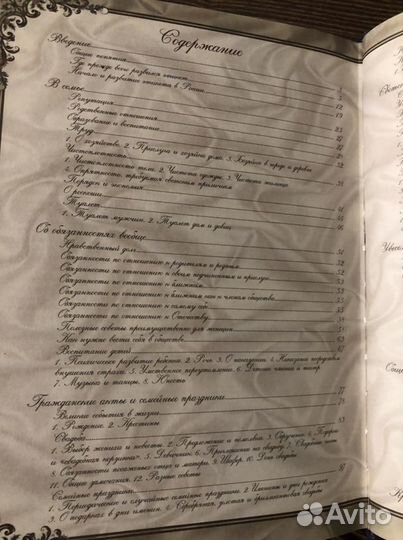 Содержание
Введение
Общие понятия
Где прежде всего развился этикет
Начало и развитие этикета в России
В семье
Репутация
Родственные отношения
Образование и воспитание
Труд
1. О хозяйстве. 2. Прислуга и хозяйка дома. 3. Хозяйка в городе и деревне
Чистоплотность
1. Чистоплотность тела. 2. Чистота одежды. 3. Чистота жилища
Опрятность, требуемая светским приличием
Порядок и экономия
О роскоши
Туалет
1. Туалет мужчин. 2. Туалет дам и девиц
Об обязанностях вообще
Нравственный долг
Обязанности по отношению к родителям и родным
Обязанности по отношению к своим подчиненным и прислуге
Обязанности по отношению к ближним
Обязанности по отношению к ближним как к членам общества
Обязанности по отношению к самому себе
Обязанности по отношению к Отечеству
Полезные советы преимущественно для женщин
Как нужно вести себя в свете
Воспитание детей
1. Психическое развитие ребенка. 2. Речь. 3. О наказании. 4. Наказания посредством
внушения страха. 5. Умственное переутомление. 6. Детские чтения и театр
7. Музыка и танцы. 8. Юность
Гражданские акты и семейные праздники
Великие события в жизни
1. Рождение. 2. Крестины
Свадьба
1. Выбор жениха и невесты. 2. Предложение и помолвка. 3. Обручение. 4. Подарок
и «свадебная корзинка». 5. Девичник. 6. Приглашения на свадьбу. 7. Свадебные чины
8. Обязанности посаженых отца и матери. 9. Шафер. 10. День свадьбы
11. Общие замечания. 12. Разные советы
Семейные праздники
1. Периодические и случайные семейные праздники. 2. Именины и дни рождения
3. О подарках в дни именин. 4. Серебряная, золотая и бриллиантовая свадьбы
Avito